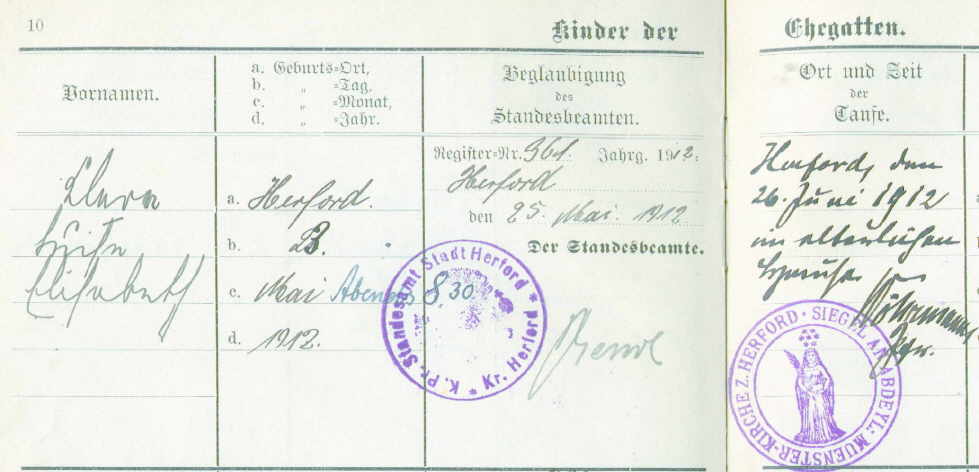 10
Kinder der
Ehegatten.
Vornamen.
a. Geburts-Ort,
b. „ -Tag,
c. „ -Monat,
d. „ -Jahr.
Beglaubigung
des
Standesbeamten.
Ort und Zeit
der
Taufe.
Clara
Luise
Elisabeth
a. Herford.
b. 23.
c. Mai Abends 8 30
d. 1912.
Register-Nr. 361. Jahrg. 1912.
Herford
den 25. Mai. 1912
Der Standesbeamte.
K. Pr. Standesamt Stadt Herford * Kr. Herford *
Herford, den
26. Juni 1912
im elterlichen
Hause
Pfr.
MUENSTER-KIRCHE Z. HERFORD · SIEGEL AN ABDEYL: